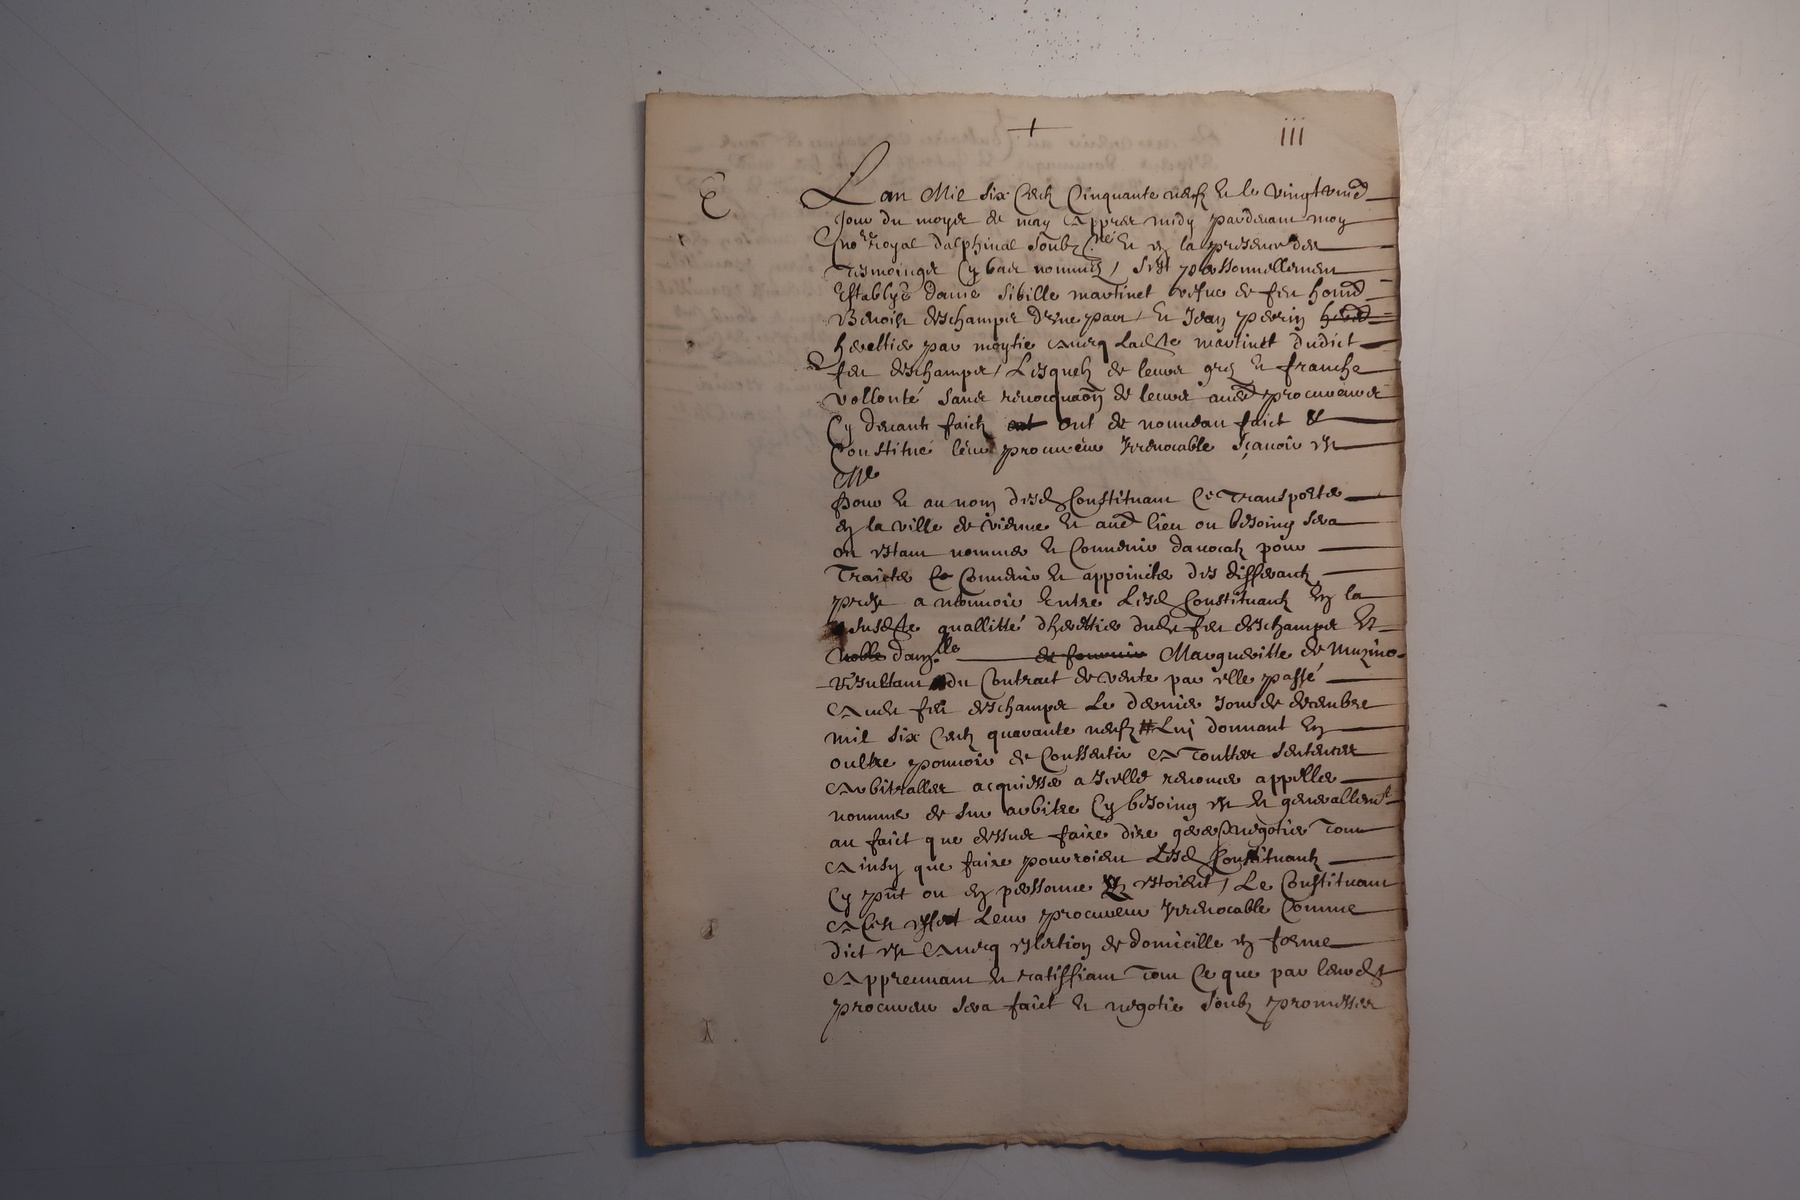 iii
E
Lan Mil six Centz Cinquante neufz et le vingt
Jour du moys de may appres midy pardevant moy
no.re royal dalphinal soubz.né et en la presence des
tesmoingz Cy bas nommes, sest personnellement
Establye dame Sibille martinet vefve de feu
Benoist deschamps dune part, et Jean perrin
herittier par moytie avecq Ladicte martinet dudict
feu deschamps, Lesquelz de leurs grez et franche
vollonté sans revocquaon de leurs procureurs
Cy devant faictz ont ont de nouveau faict &
Constitué leur procureur Irrevocable sçavoir est
Me
Pour et au nom desd Constituant Ce transporter
en la ville de vienne et lieu ou besoing sera
ou estant nommer et Convenir davocatz pour
Traicter Ce Convenir et appoincter des differantz
a mouvoir Entre Lesd Constituantz En la
susdte quallitté dherittier dudt feu deschamps Et
Noble dam.lle de fournir Margueritte de
resultant du Contract de vente par elle passé
Audt feu deschamps Le dernier Jour de decembre
mil six Centz quarante neufz # Luy donnant En
oultre pouvoir de Conssentir A touttes sentences
Arbitralles acquiesser a Icelle renoncer appeller
nommer de sur arbitre Cy besoing est et generallemt
au faict que dessus faire dire gerer negotier tout
Ainsy que faire pourroient Lesd Constituantz
Cy pnt ou en personne estoient, Le Constituant
A Cest effect Leur procureur Irrevocable Comme
dict est Avecq eslection de domicille en forme
Apprenvant et ratiffiant tout Ce que par leurdt
procureur sera faict et negotie soubz promesses